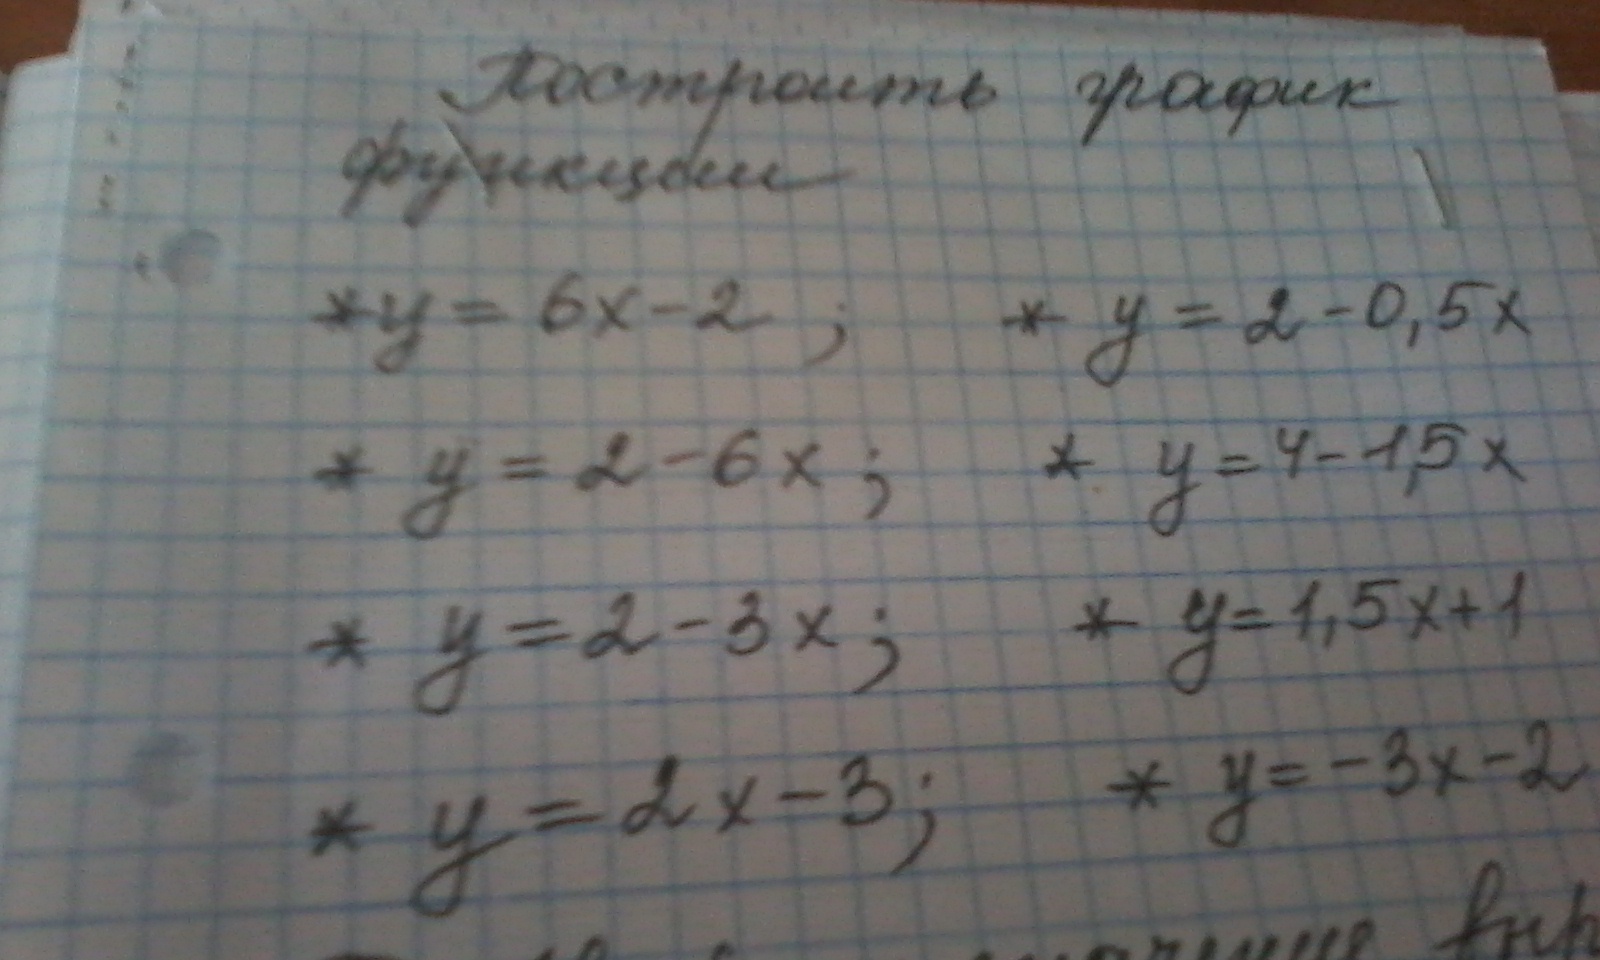 Построить график
функции
* y = 6x - 2 ; * y = 2 - 0,5x
* y = 2 - 6x ; * y = 4 - 1,5x
* y = 2 - 3x ; * y = 1,5x + 1
* y = 2x - 3 ; * y = -3x - 2